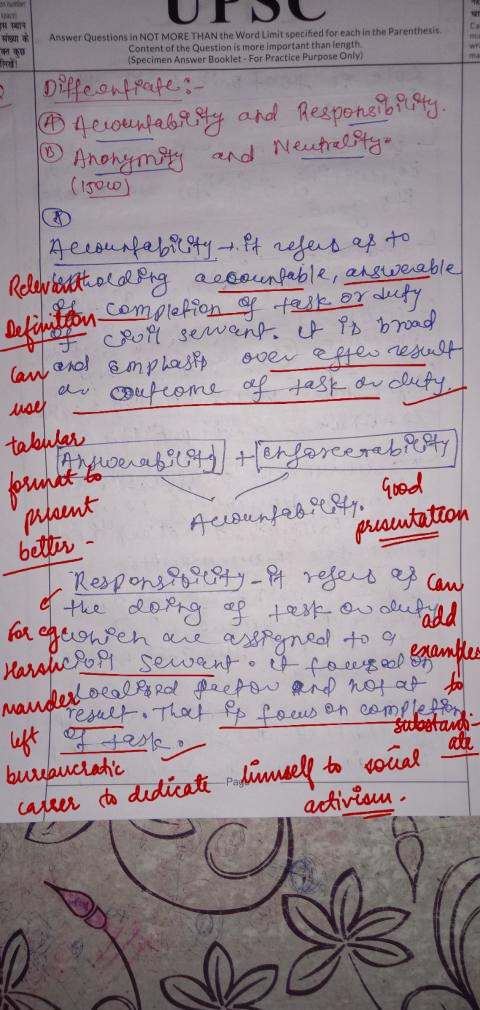 UPSC
Answer Questions in NOT MORE THAN the Word Limit specified for each in the Parenthesis.
Content of the Question is more important than length.
(Specimen Answer Booklet - For Practice Purpose Only)
Differentiate:-
(A) Accountability and Responsibility.
(B) Anonymity and Neutrality.
(150w)
Accountability → it refers as to
upholding accountable, answerable
of completion of task or duty
of civil servant. it is broad
and emphasis over after result
or outcome of task or duty.
Relevant
Definition
Can
use
tabular
format to
present
better -
Answerability + enforcerability
Accountability.
Good
presentation
Responsibility - it refers as
the doing of task or duty
which are assigned to a
civil servant. it focused on
localised factor and not at
result. That is focus on completion
of task.
Can
add
examples
to
substanti-
ate
For eg
Harsh
mander
left
bureaucratic
career to dedicate himself to social
activism.
Page